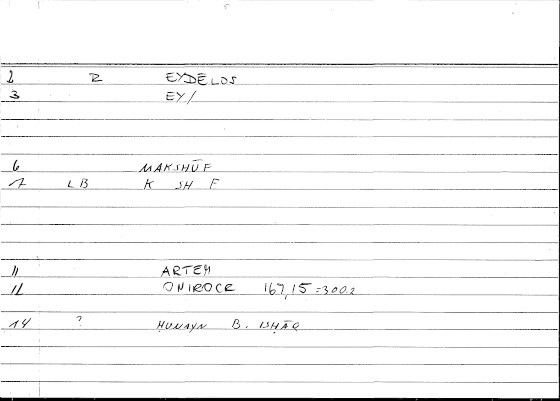 2 R EYDĒLOS
3 EY/
6 MAKSHŪF
7 LB K SH F
11 ARTEM
12 ONIROCR 167,15=300.2
14 ? ḤUNAYN B. ISḤĀQ